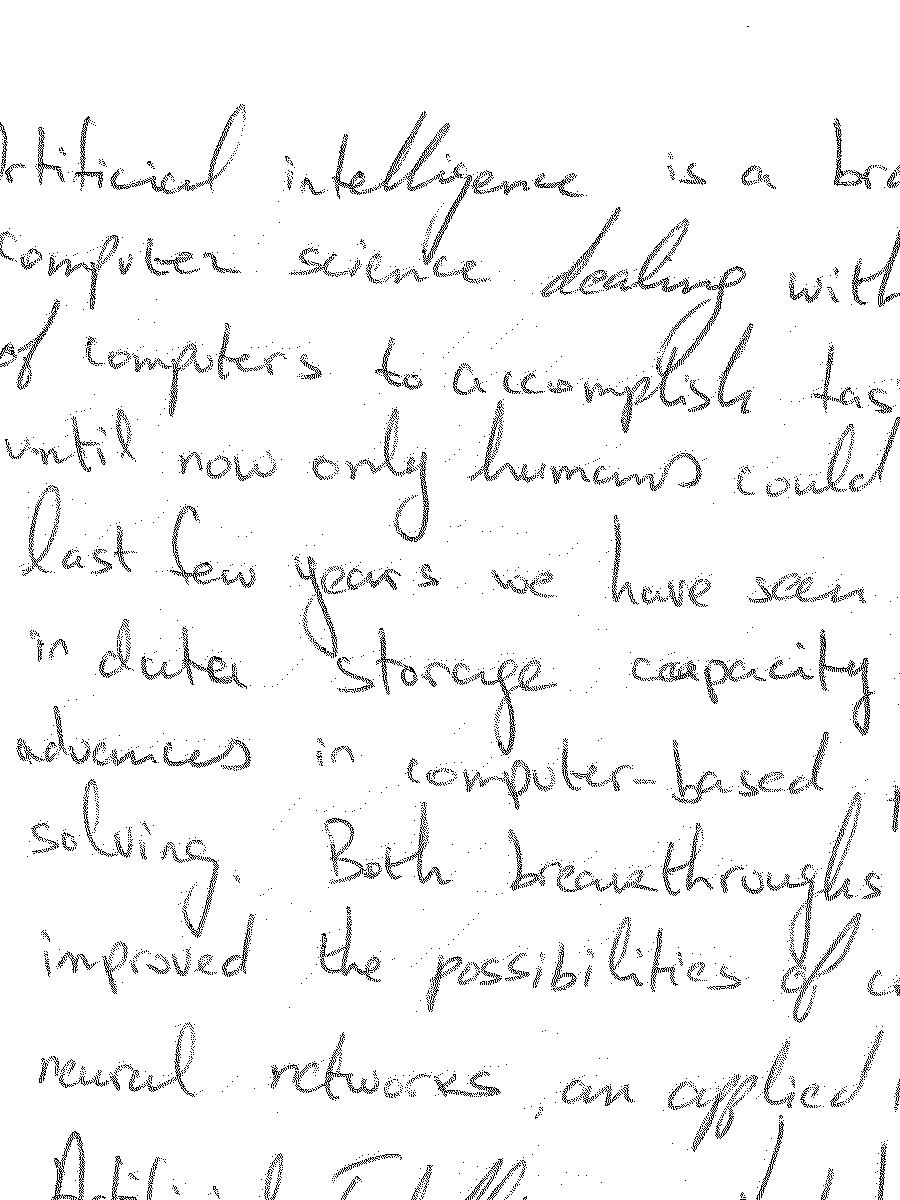 Artificial intelligence is a bra
computer science dealing with
of computers to accomplish tas
until now only humans could
last few years we have seen
in data storage capacity
advances in computer-based
solving. Both breakthroughs
improved the possibilities of
neural networks, an applied
Artificial Intelligence